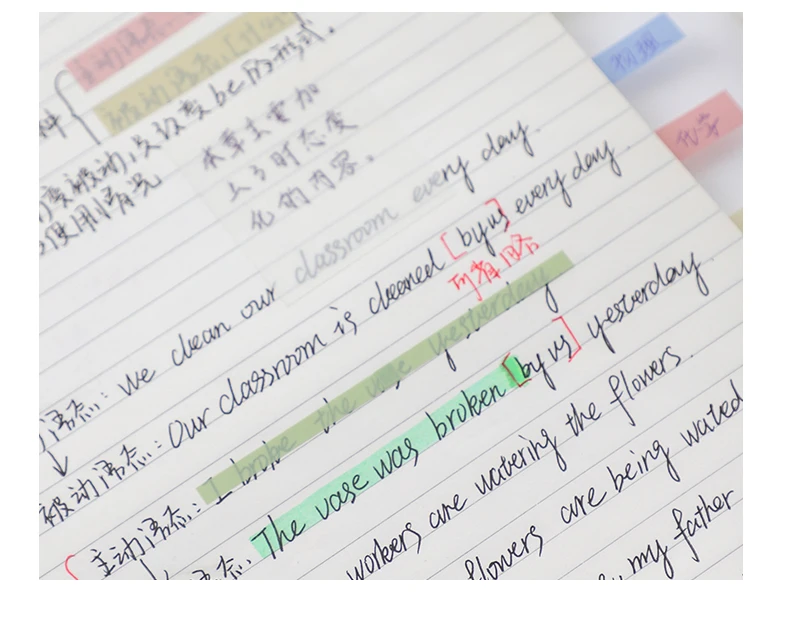 主动语态
被动语态
种
变被动,只改变be的形式.
使用情况
本章主要加
上了时态变
化的内容。
物理
化学
语态: we clean our classroom every day.
被动语态: Our classroom is cleaned [by us] every day.
可省略
主动语态: I broke the vase yesterday
语态. The vase was broken [by us] yesterday.
workers are watering the flowers.
flowers are being wated
my father